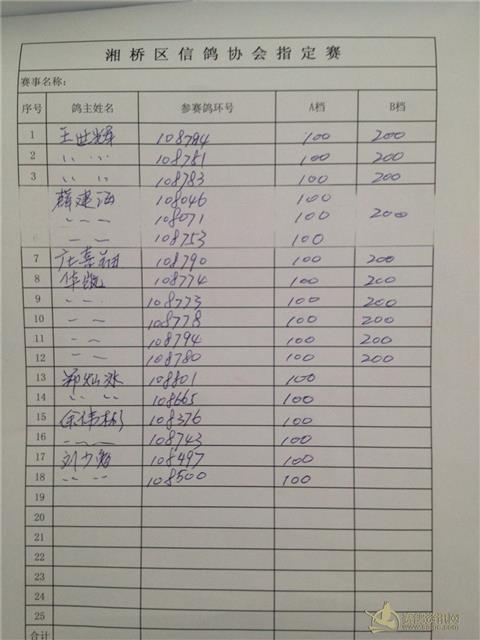 湘桥区信鸽协会指定赛
赛事名称:
序号 鸽主姓名 参赛鸽环号 A档 B档
1 王世辉 108784 100 200
2 〃 〃 108781 100 200
3 〃 〃 108783 100 200
108046 100
108071 100 200
108753 100
7 108790 100 200
8 华凯 108774 100 200
9 〃 〃 108773 100 200
10 〃 〃 108778 100 200
11 〃 〃 108794 100 200
12 〃 〃 108780 100 200
13 郑灿冰 108801 100
14 〃 〃 108665 100
15 余伟彬 108376 100
16 〃 〃 108743 100
17 刘少 108497 100
18 〃 〃 108500 100
19
20
21
22
23
24
25
合计